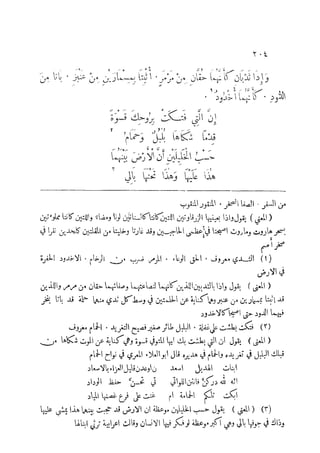 ٢٠٤
وَإِذَا ثَدْيَانِ كَأَنَّهُمَا حُقَّانِ مِنْ مَرْمَرٍ، أُثْبِتَا بِمِسْمَارَيْنِ مِنْ عَنْبَرٍ، بَانَا مِنَ
الدُّودِ، كَأَنَّهُمَا أُخْدُودٌ ١
إِنَّ الَّتِي فَتَكَتْ بِرُوحِكَ قَسْوَةً
قِدْمًا شَكَاهَا بُلْبُلٌ وَحَمَامُ ٢
حَسْبُ الْخَلِيلَيْنِ أَنَّ الْأَرْضَ بَيْنَهُمَا
هٰذَا عَلَيْهَا وَهٰذَا تَحْتَهَا بَالِي
من السفر. الصفا الصخر. المنقور المثقوب
(المعنى) يقول واذا بعينيها الزرقاوين اللتين كانتا كالسنانين لونا ومضاء واللتين كانتا مملوءتين
بسحر هاروت وماروت اصبحتا في اعظمي الحاجبين وقد غارتا وخليتا من المقلتين كلحدين نقرا في
صخر أصم
(١) الثدي معروف. الحق الوعاء. المرمر ضرب من الرخام. الاخدود الحفرة
في الارض
(المعنى) يقول واذا بالثديين اللذين كانهما لنصاعتهما وصفائهما حقان من مرمر واللذين
قد اثبتا بمسمارين من عنبر وهما كناية عن الحلمتين في وسط كل ثدي منهما حلمة قد بانا ينخر
فيهما الدود حتى اصبحا كالاخدود
(٢) فتكت بطشت على غفلة. البلبل طائر صغير فصيح التغريد. الحمام معروف
(المعنى) يقول ان التي بطشت بك ايها المتوفي قسوة وهي كناية عن الموت شكاها من
قبلك البلبل في تغريده والحمام في هديره قال ابو العلاء المعري في نواح الحمام
ابنات الهديل اسعدن او عدن قليل العزاء بالاسعاد
ايه لله دركن فانتن اللواتي تحسن حفظ الوداد
ابكت تلكم الحمامة ام غنت على فرع غصنها المياد
(٣) (المعنى) يقول حسب الخليلين موعظة ان الارض قد حجبت بينهما هذا يمشي عليها
وذاك في جوفها بالي وهي اكبر موعظة لو فكر فيها الانسان وقالت اعرابية ترثي ابنها